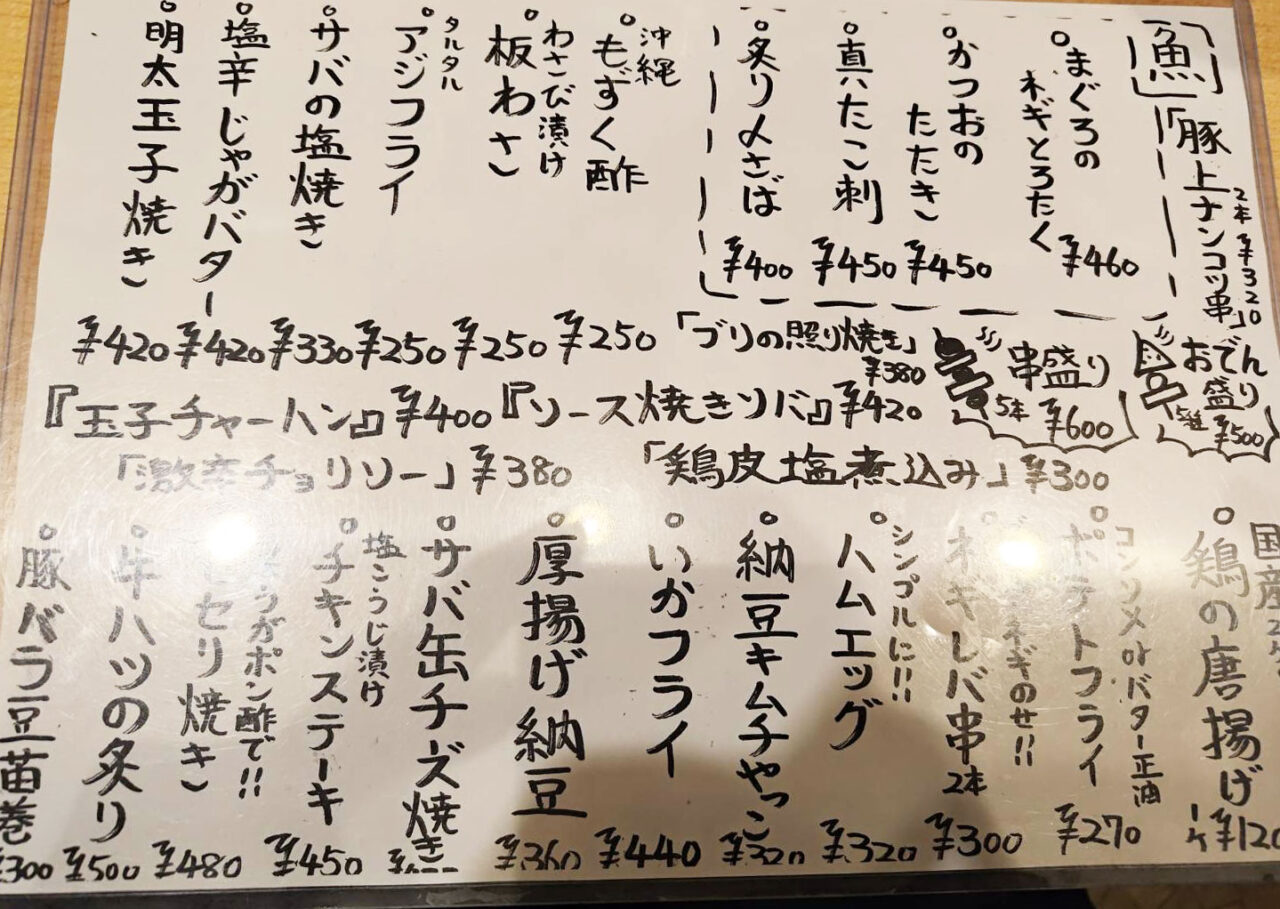 魚
「豚上ナンコツ串」
2本 ¥320
まぐろの
ネギとろたく
¥460
かつおの
たたき
¥450
真だこ刺
¥450
炙り〆さば
¥400
沖縄
もずく酢
¥250
わさび漬け
板わさ
¥250
タルタル
アジフライ
¥250
サバの塩焼き
¥330
塩辛じゃがバター
¥420
明太玉子焼き
¥420
おでん
盛り
5種 ¥500
串盛り
5本 ¥600
「ブリの照り焼き」
¥380
『玉子チャーハン』 ¥400
『ソース焼きソバ』 ¥420
「激辛チョリソー」 ¥380
「鶏皮塩煮込み」 ¥300
国産
鶏の唐揚げ
1ケ ¥120
コンソメorバター正油
ポテトフライ
¥270
ネギのせ!!
ネギレバ串
2本
¥300
シンプルに!!
ハムエッグ
¥320
納豆キムチやっこ
¥320
いかフライ
¥440
厚揚げ納豆
¥360
サバ缶チーズ焼き
塩こうじ漬け
チキンステーキ
¥450
うがポン酢で!!
セリ焼き
¥480
牛ハツの炙り
¥500
豚バラ豆苗巻
¥300